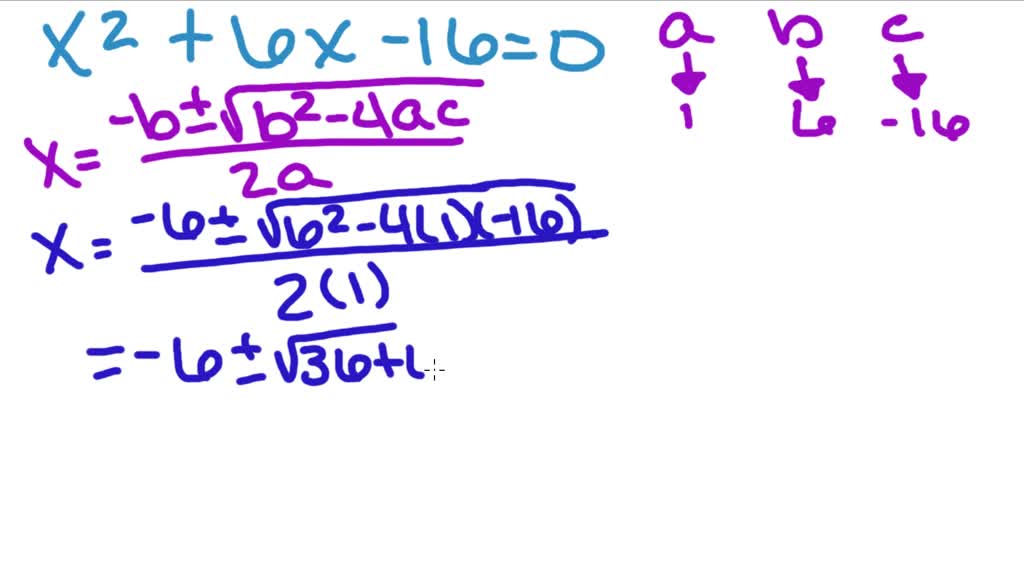 x² + 6x - 16 = 0
a b c
1 6 -16
x = -b ± √b² - 4ac
2a
x = -6 ± √6² - 4(1)(-16)
2(1)
= -6 ± √36 +